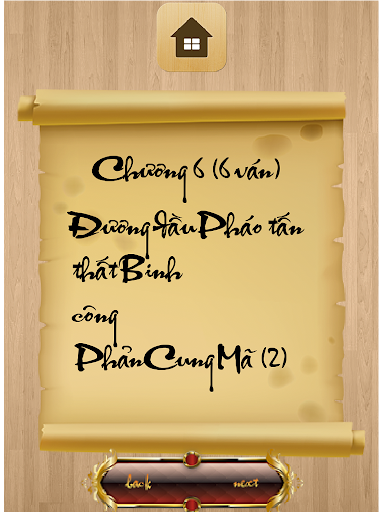 Chương 6 (6 ván)
Đương đầu Pháo tấn
thất Binh
công
Phản Cung Mã (2)
back next